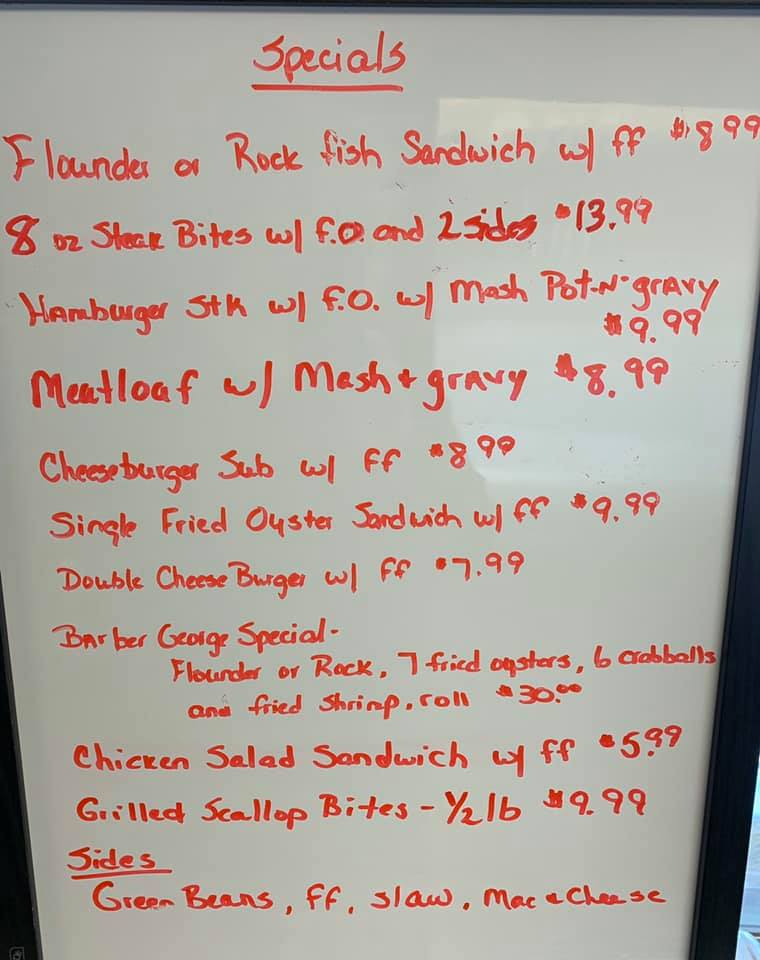 Specials
Flounder or Rock fish Sandwich w/ ff $8.99
8 oz Steak Bites w/ f.o. and 2 sides $13.99
Hamburger Stk w/ f.o. w/ Mash Pot-N-gravy
$9.99
Meatloaf w/ Mash + gravy $8.99
Cheeseburger Sub w/ ff $8.99
Single Fried Oyster Sandwich w/ ff $9.99
Double Cheese Burger w/ ff $7.99
Barber George Special-
Flounder or Rock, 7 fried oysters, 6 crabballs
and fried shrimp, roll $30.00
Chicken Salad Sandwich w/ ff $5.99
Grilled Scallop Bites - 1/2 lb $9.99
Sides
Green Beans, ff, slaw, Mac & Cheese